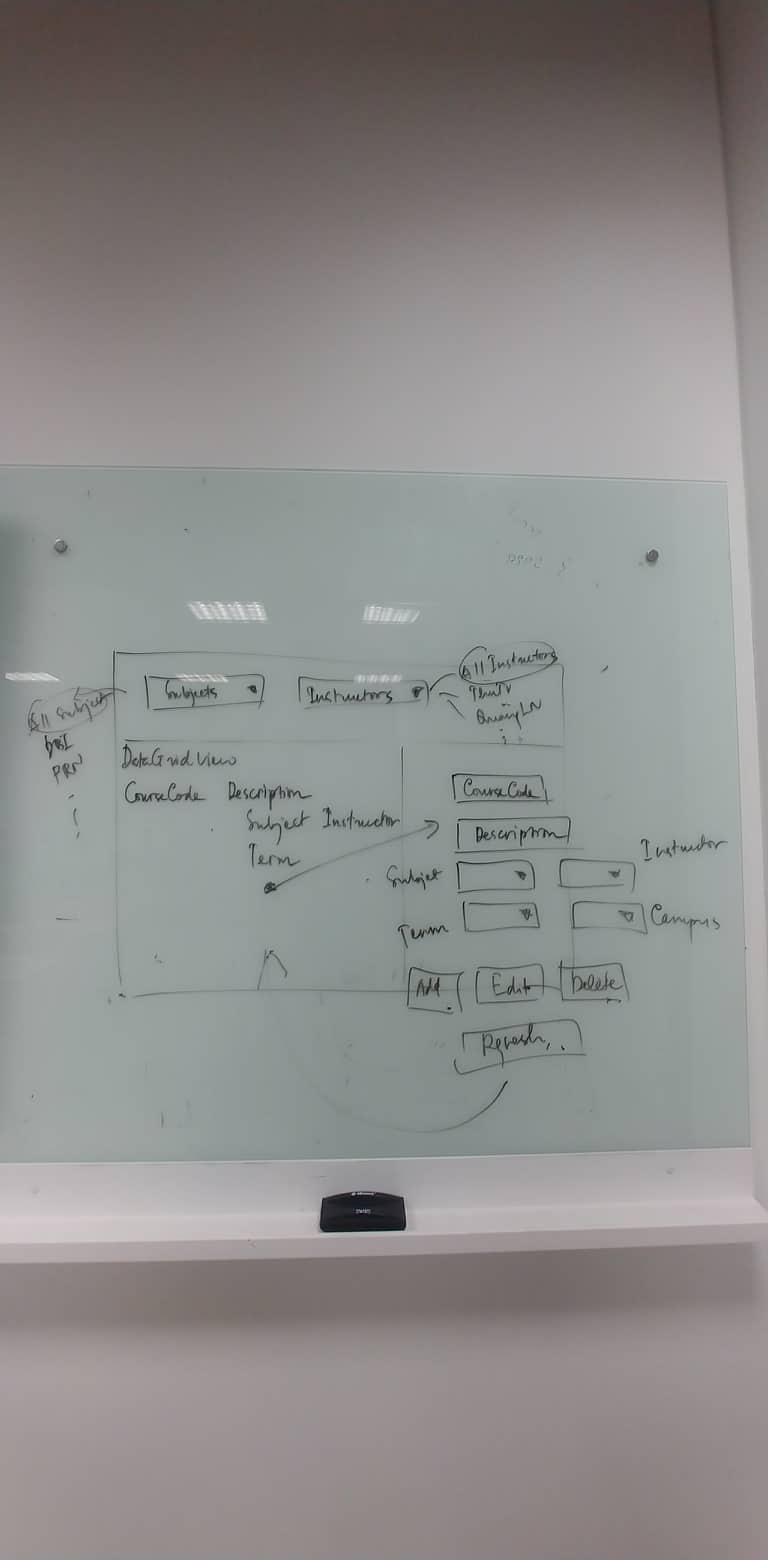 All Instructors
Subjects
Instructors
All Subject
PRN
DataGridView
CourseCode Description
Subject Instructor
Term
CourseCode
Description
Instructor
Subject
Term
Campus
Add Edit Delete
Refresh